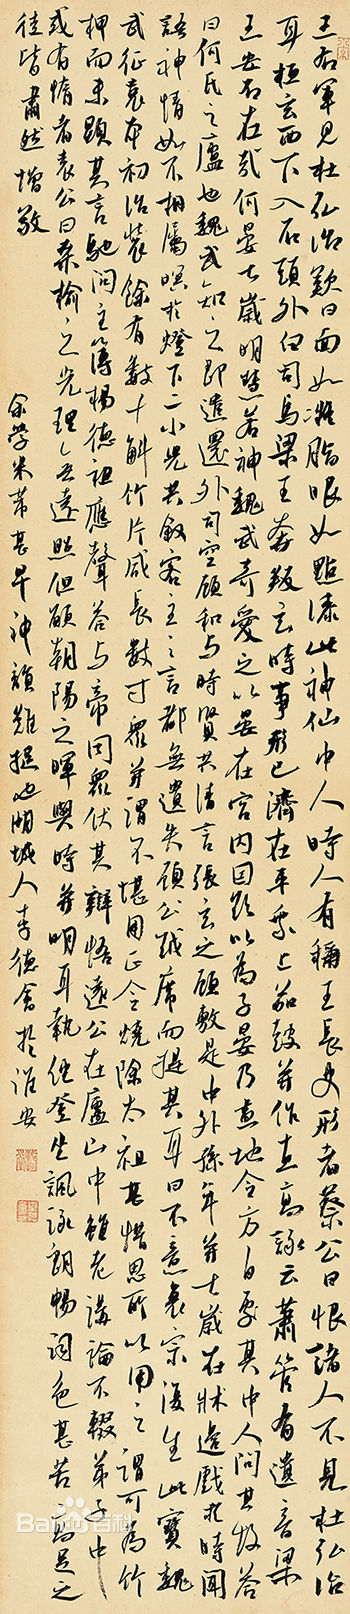 王右军见杜弘治歎曰面如凝脂眼如點漆此神仙中人時人有稱王長史形者蔡公曰恨諸人不見杜弘治
耳桓玄西下入石頭外白司馬梁王奔叛玄時事形已濟在平乘上笳鼓并作直高詠云蕭管有遺音梁
王安在哉何晏七歲明慧若神魏武奇愛之以晏在宮內因欲以為子晏乃畫地令方自處其中人問其故答
曰何氏之廬也魏武知之即遣還外司空顧和與時賢共清言張玄之顧敷是中外孫年并七歲在牀邊戲於時聞
語神情如不相屬暝於燈下二小兒共敘客主之言都無遺失顧公越席而提其耳曰不意衰宗復生此寶魏
武征袁本初治裝餘有數十斛竹片咸長數寸眾并謂不堪用正令燒除太祖甚惜思所以用之謂可為竹
椑而未顯其言馳問主簿楊德祖應聲答與帝同眾伏其辯悟遠公在廬山中雖老講論不輟弟子中
或有惰者遠公曰桑榆之光理無遠照但願朝陽之暉與時并明耳執經登坐諷誦朗暢詞色甚苦高足之
徒皆肅然增敬
余學米芾甚早神韻難捉也 人李德 於淮安
Bai 百科